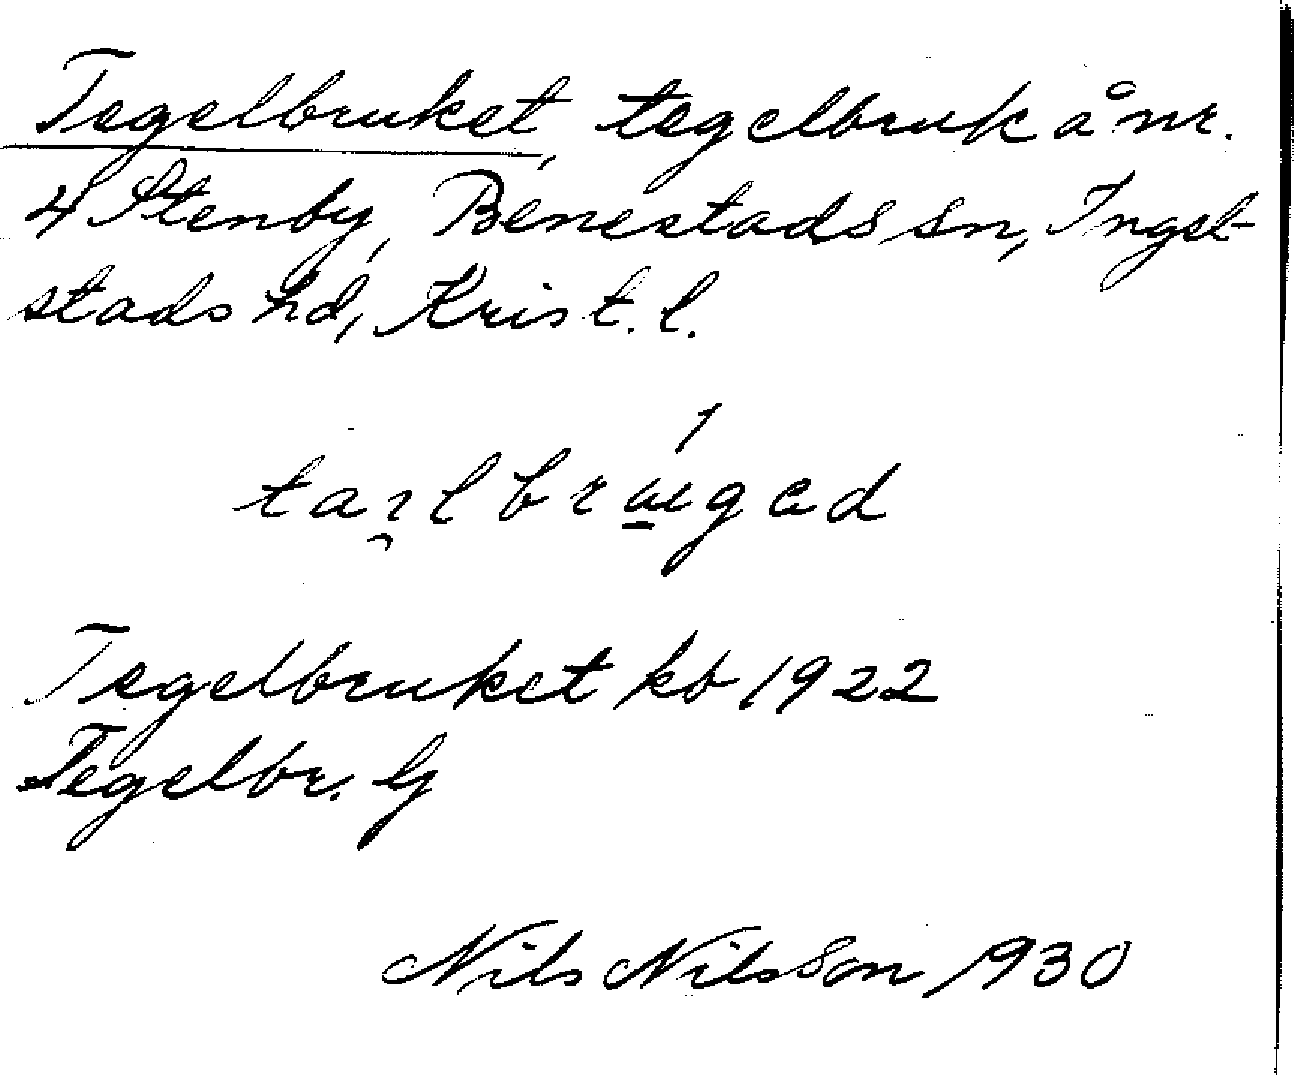 Tegelbruket, tegelbruk å nr.
4 Stenby, Benestads sn, Ingel-
stads hd, Krist. l.
Tegelbruket kb 1922
Tegelbr. G
Nils Nilsson 1930